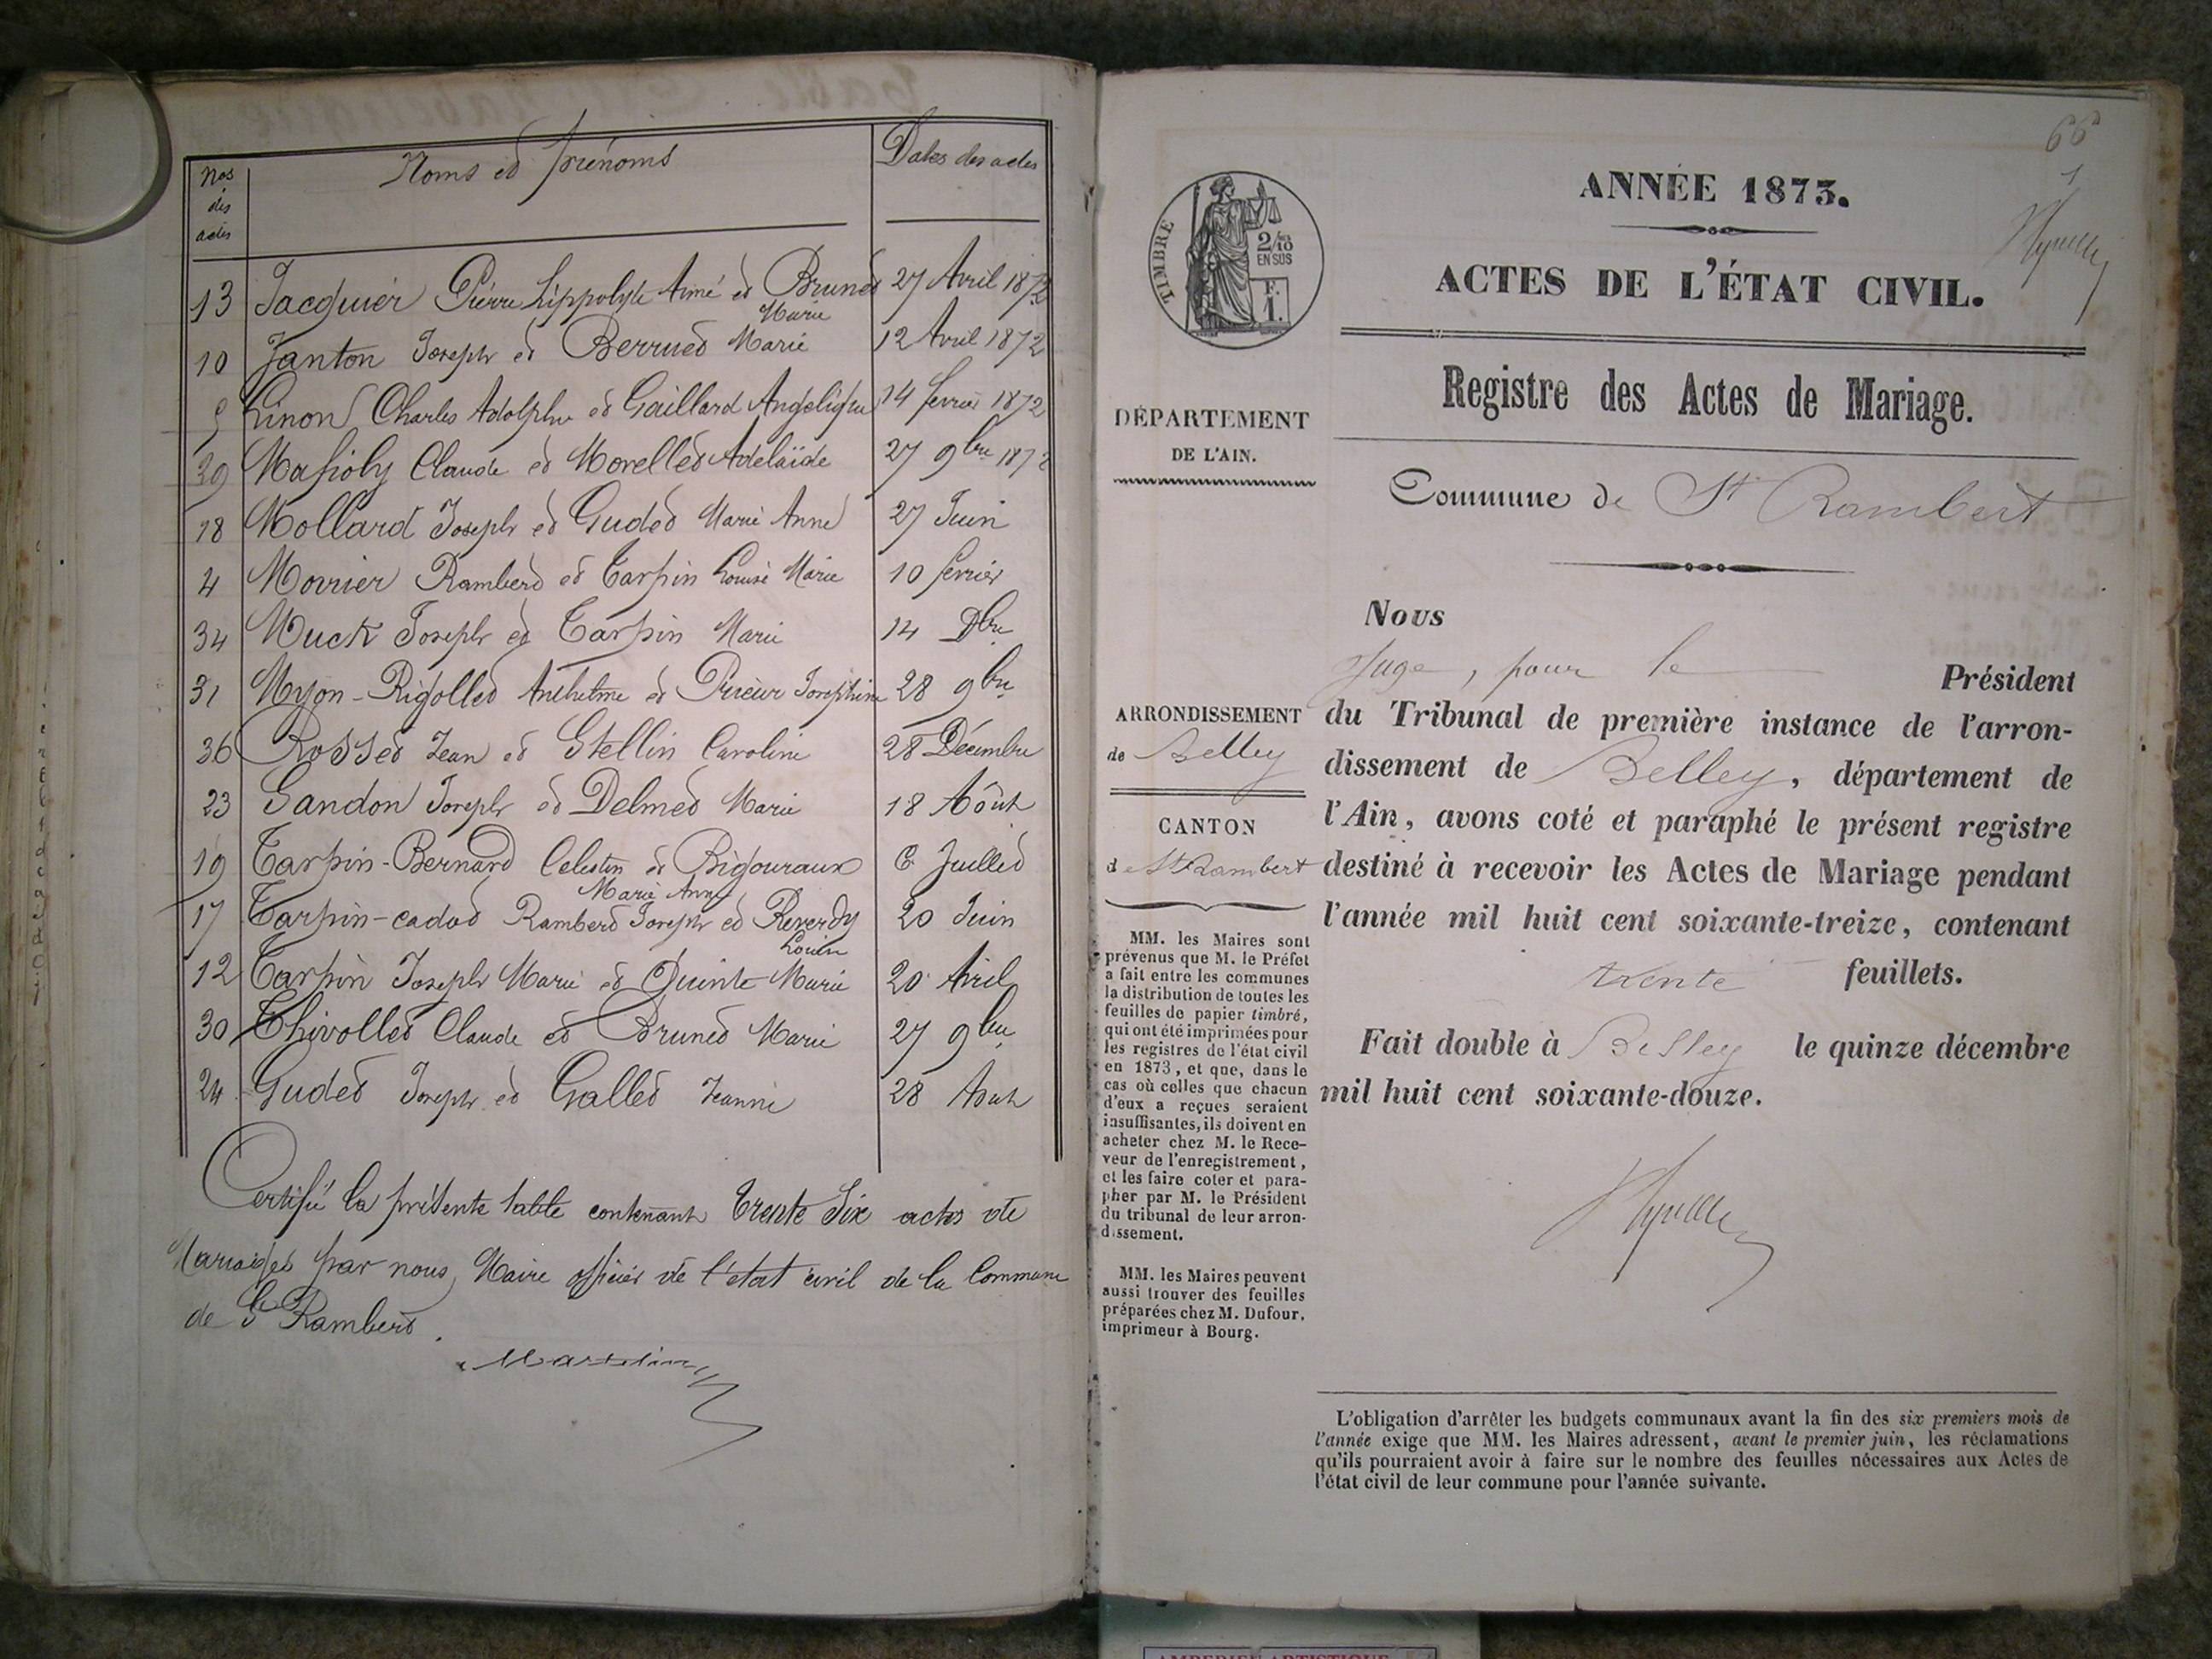 Nos des actes Noms et prénoms Dates des actes
13 Jacquier Pierre hippolyte Aimé et Brunet Marie 27 Avril 1872
10 Janton Joseph et Berruet Marie 12 Avril 1872
Linon Charles Adolphe et Gaillard Angelique 14 fevrier 1872
29 Massioly Claude et Morellet Adelaïde 27 9bre 1872
18 Mollard Joseph et Gudet Marie Anne 27 Juin
4 Rambert et Tarpin Louise Marie 10 fevrier
34 Muck Joseph et Tarpin Marie 14 Dbre
31 Myon-Rigollet Anthelme et Josephine 28 9bre
36 Rosset Jean et Stellin Caroline 28 Décembre
23 Sandon Joseph et Delmet Marie 18 Août
19 Tarpin-Bernard Celestin et Bigouraux Marie Anne 6 Juillet
17 Tarpin-cadot Rambert Joseph et Reverdy Louise 20 Juin
12 Tarpin Joseph Marie et Quinte Marie 20 Avril
30 Thivollet Claude et Brunet Marie 27 9bre
24 Gudet Joseph et Gallet Jeanne 28 Aout
Certifié la présente table contenant trente Six actes de
Mariages par nous, Maire officier de l'état civil de la Commune
de St Rambert.
66
1
ANNÉE 1873.
ACTES DE L'ÉTAT CIVIL.
TIMBRE
2/10
EN SUS
F.
1.
Registre des Actes de Mariage.
DÉPARTEMENT
DE L'AIN.
Commune de St Rambert
Nous
Juge, pour le Président
du Tribunal de première instance de l'arron-
dissement de Belley, département de
l'Ain, avons coté et paraphé le présent registre
destiné à recevoir les Actes de Mariage pendant
l'année mil huit cent soixante-treize, contenant
trente feuillets.
Fait double à Belley le quinze décembre
mil huit cent soixante-douze.
ARRONDISSEMENT
de Belley
CANTON
de St Rambert
MM. les Maires sont
prévenus que M. le Préfet
a fait entre les communes
la distribution de toutes les
feuilles de papier timbré,
qui ont été imprimées pour
les registres de l'état civil
en 1873, et que, dans le
cas où celles que chacun
d'eux a reçues seraient
insuffisantes, ils doivent en
acheter chez M. le Rece-
veur de l'enregistrement,
et les faire coter et para-
pher par M. le Président
du tribunal de leur arron-
dissement.
MM. les Maires peuvent
aussi trouver des feuilles
préparées chez M. Dufour,
imprimeur à Bourg.
L'obligation d'arrêter les budgets communaux avant la fin des six premiers mois de
l'année exige que MM. les Maires adressent, avant le premier juin, les réclamations
qu'ils pourraient avoir à faire sur le nombre des feuilles nécessaires aux Actes de
l'état civil de leur commune pour l'année suivante.